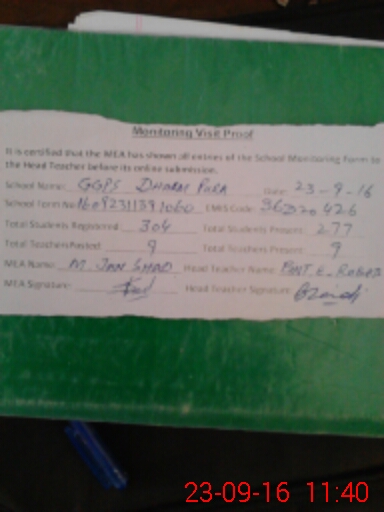 Monitoring Visit Proof
It is certified that the MEA has shown all entries of the School Monitoring Form to
the Head Teacher before its online submission.
School Name: GGPS DHARAM PURA Date: 23-9-16
School Form No: EMIS Code:
Total Students Registered: 304 Total Students Present: 277
Total Teachers Posted: 9 Total Teachers Present: 9
MEA Name: M. JAN Head Teacher Name:
MEA Signature: Head Teacher Signature:
23-09-16 11:40